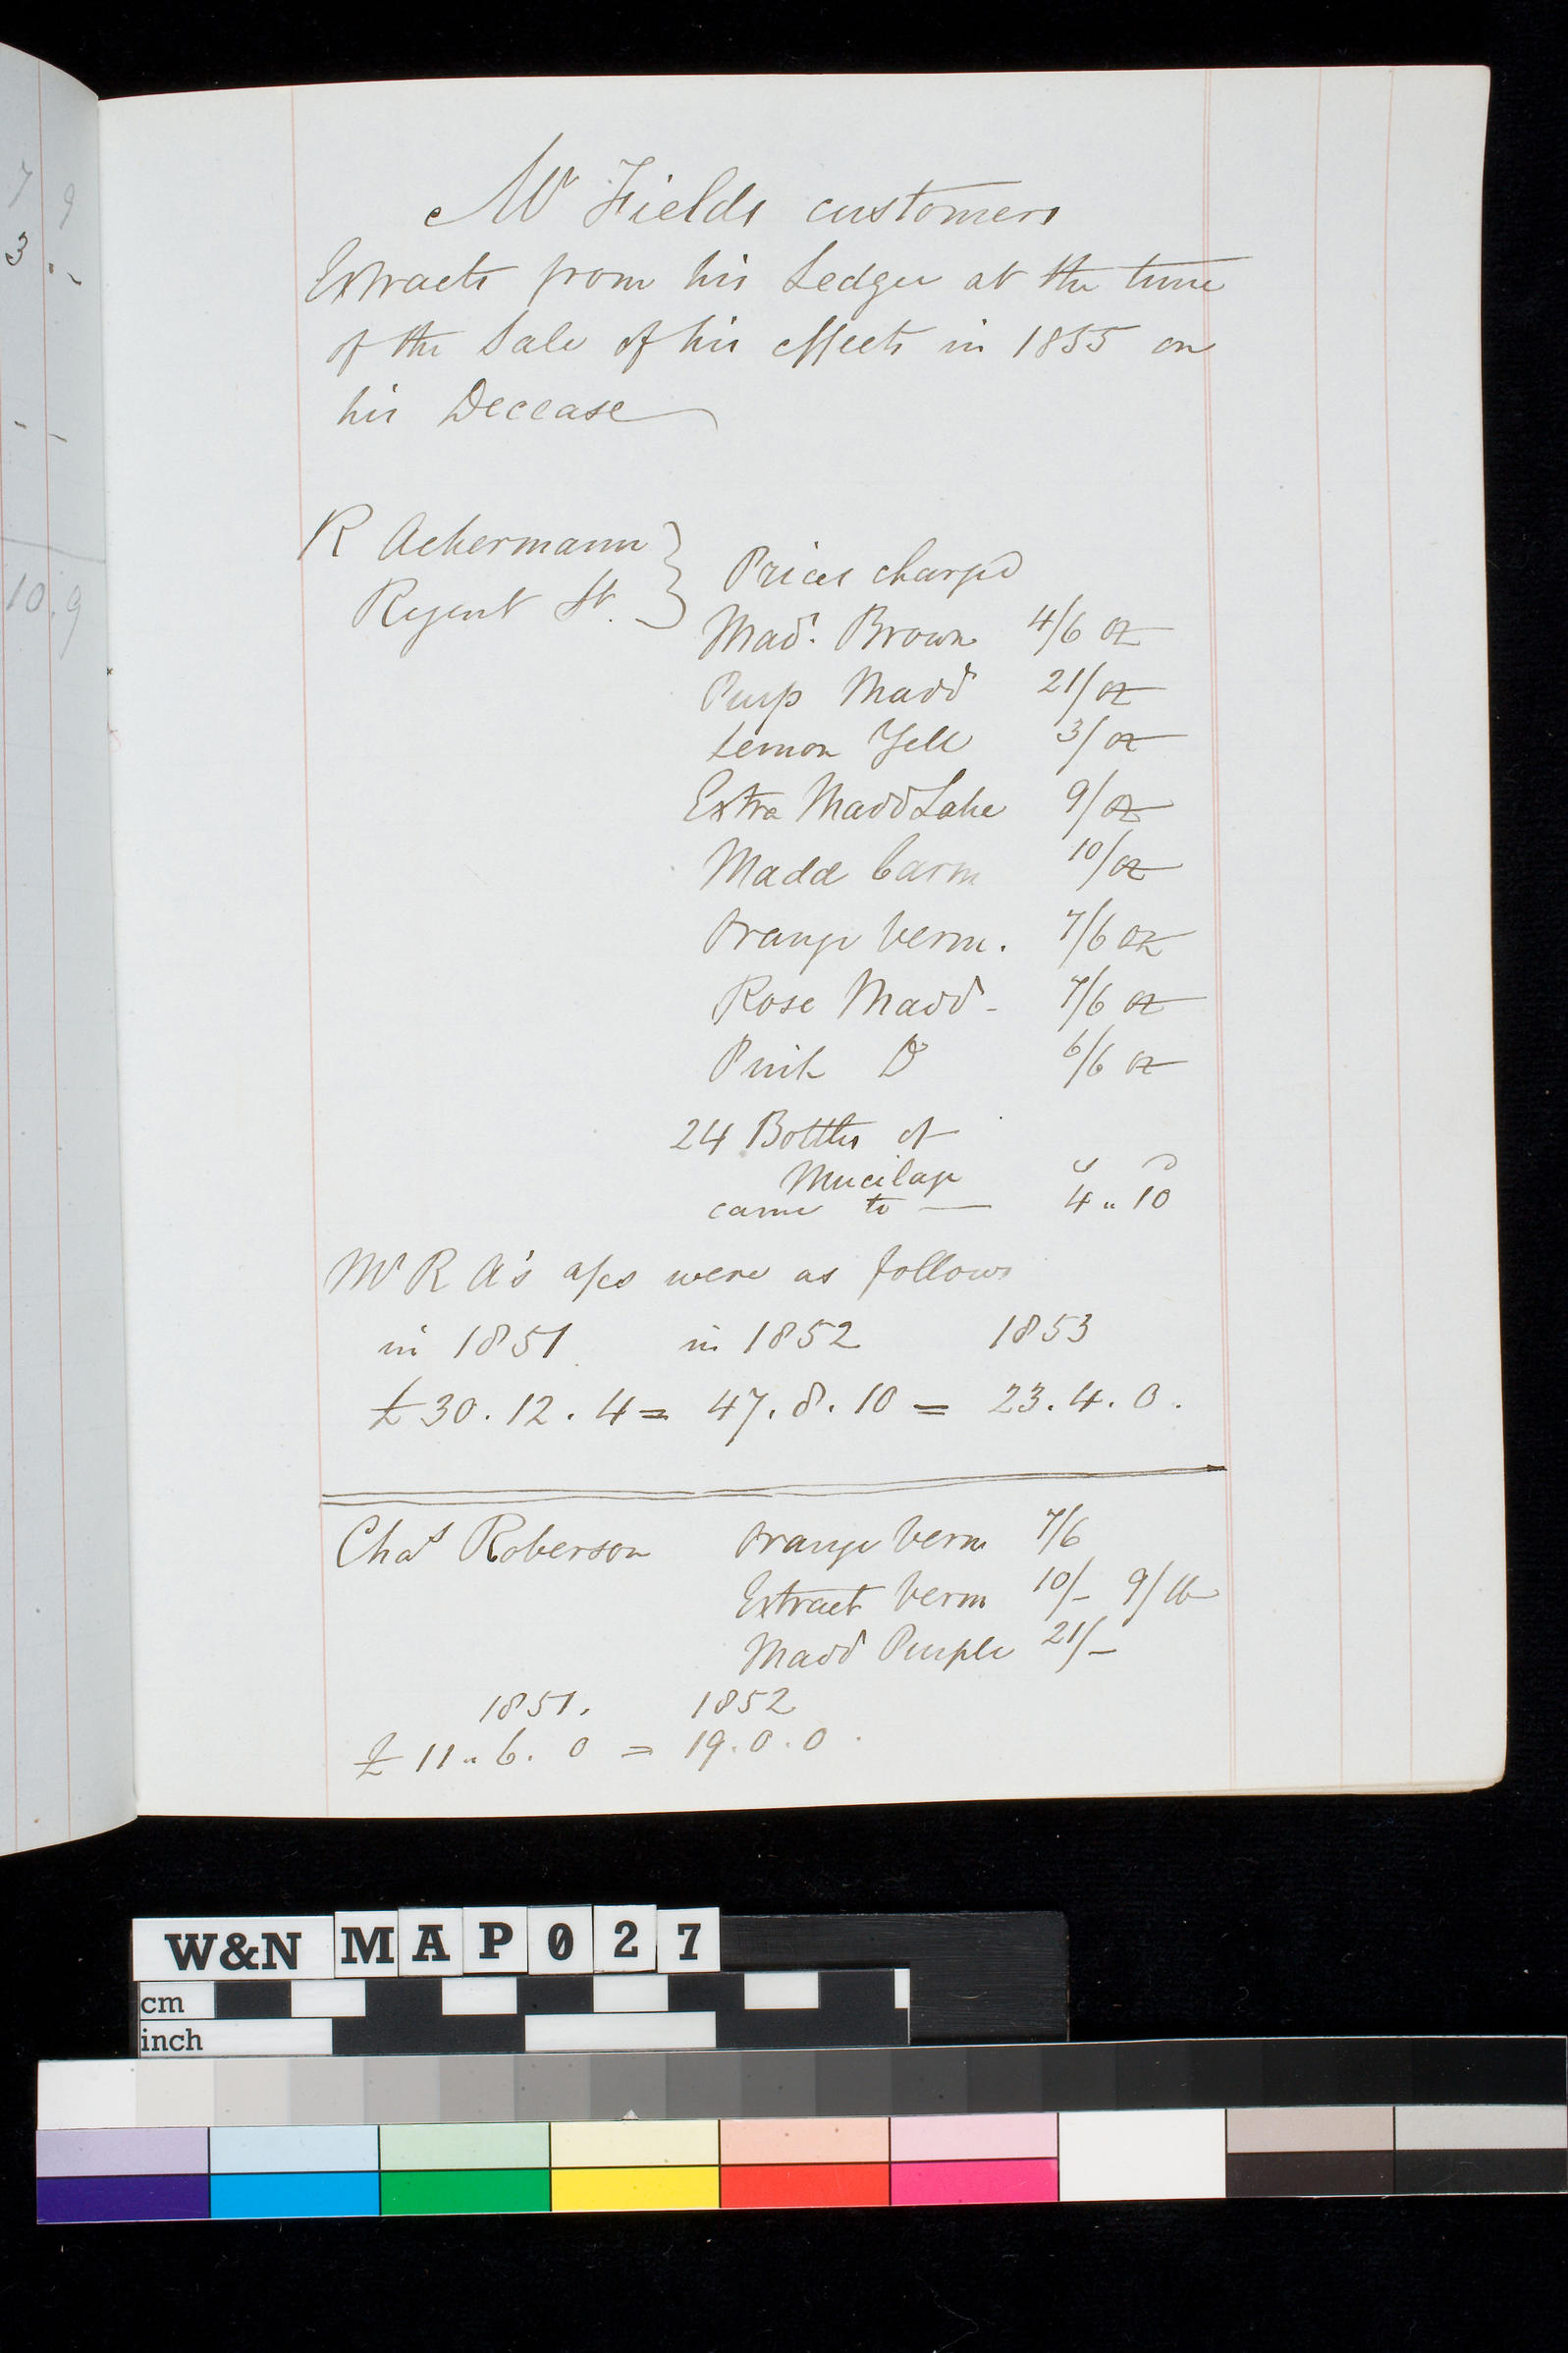 7 9
3 . -
- -
10.9
Mr Fields customers
Extracts from his Ledger at the time
of the Sale of his effects in 1855 on
his Decease
R Ackermann
Regent St.
Prices charged
Madr. Brown 4/6 oz
Purp Madd 21/ oz
Lemon Yell 3/ oz
Extra Madd Lake 9/ oz
Madd Carm 10/ oz
Orange Verm. 7/6 oz
Rose Madd - 7/6 oz
Pink Do 6/6 oz
24 Bottles of
Mucilage
s d
came to — 4 " 10
Mr R A's a/cs were as follows
in 1851 in 1852 1853
£ 30 . 12 . 4 = 47 . 8 . 10 = 23 . 4 . 0 .
Chas Roberson Orange Verm 7/6
Extract Verm 10/- 9/ lb
Madd Purple 21/-
1851. 1852
£ 11 " 6 . 0 = 19 . 0 . 0 .
W&N MAP027
cm
inch